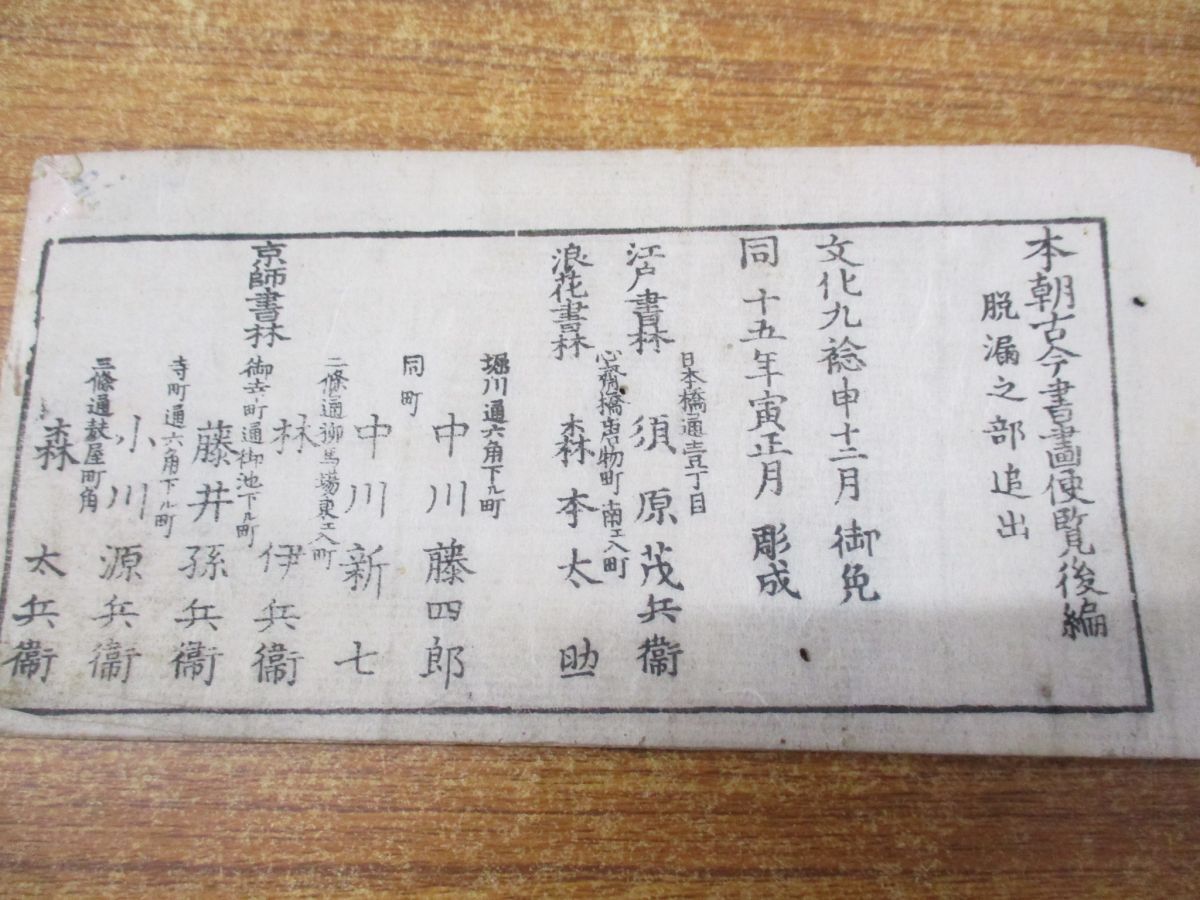 本朝古今書畫便覧後編
脱漏之部追出
文化九稔申十二月御免
同十五年寅正月彫成
江戸書林
日本橋通壹丁目
須原茂兵衞
浪花書林
心齋橋唐物町南エ入町
森本太助
京師書林
堀川通六角下ル町
中川藤四郎
同町
中川新七
二條通柳馬場東エ入町
林伊兵衞
御幸町通御池下ル町
藤井孫兵衞
寺町通六角下ル町
小川源兵衞
三條通麩屋町角
森太兵衞